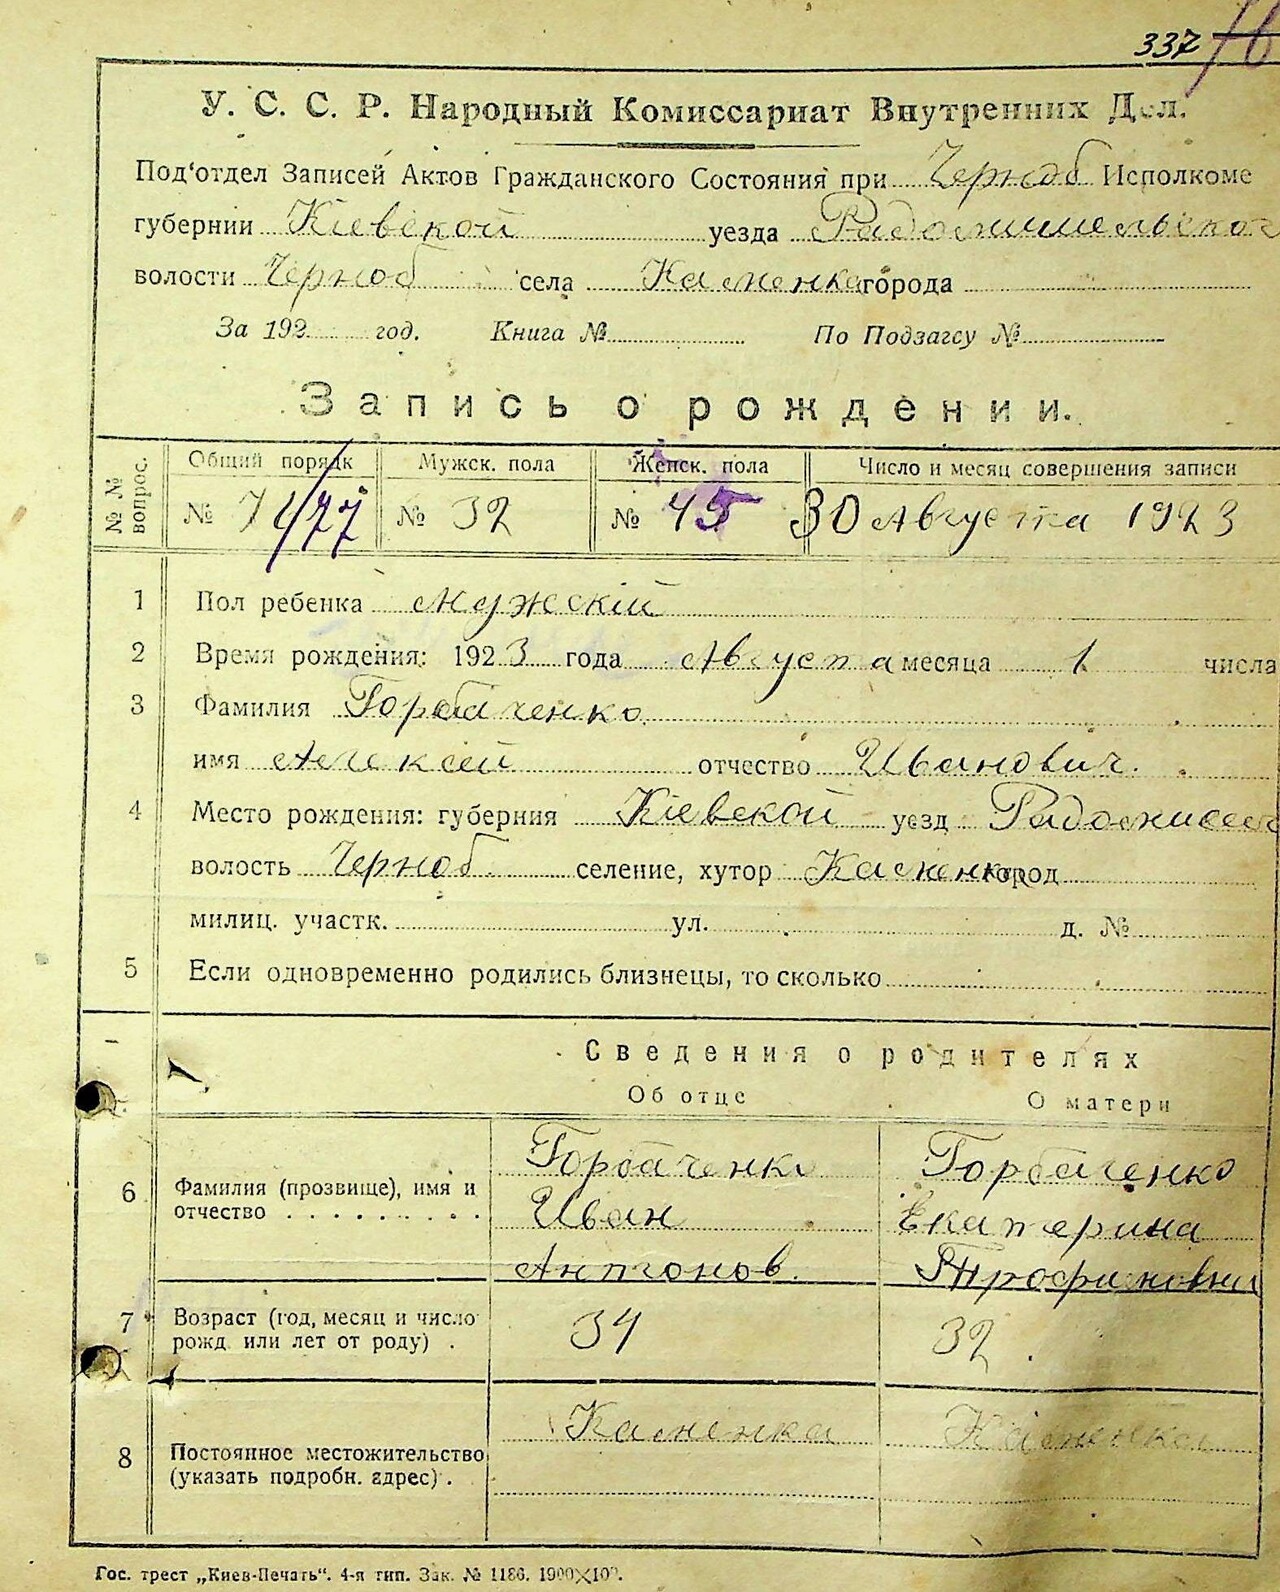 337
У. С. С. Р. Народный Комиссариат Внутренних Дел.
Под'отдел Записей Актов Гражданского Состояния при Черноб Исполкоме
губернии Кіевской уезда Радомишельской
волости Черноб села Каменка города
За 192 год. Книга № По Подзагсу №
Запись о рождении.
№ № вопрос. Общий порядк Мужск. пола Женск. пола Число и месяц совершения записи
№ 77 № 32 № 45 30 Августа 1923
1 Пол ребенка мужскій
2 Время рождения: 1923 года Августа месяца 1 числа
3 Фамилия Горбаченко
имя Алексей отчество Иванович.
4 Место рождения: губерния Кіевской уезд
волость Черноб селение, хутор Каменка город
милиц. участк. ул. д. №
5 Если одновременно родились близнецы, то сколько
Сведения о родителях
Об отце О матери
6 Фамилия (прозвище), имя и отчество Горбаченко Горбаченко
Иван Екатерина
Антонов. Трофимовна
7 Возраст (год, месяц и число рожд. или лет от роду) . 34 32
8 Постоянное местожительство (указать подробн. адрес) . Каменка Каменка
Гос. трест „Киев-Печать“. 4-я тип. Зак. № 1186. 1900×100.